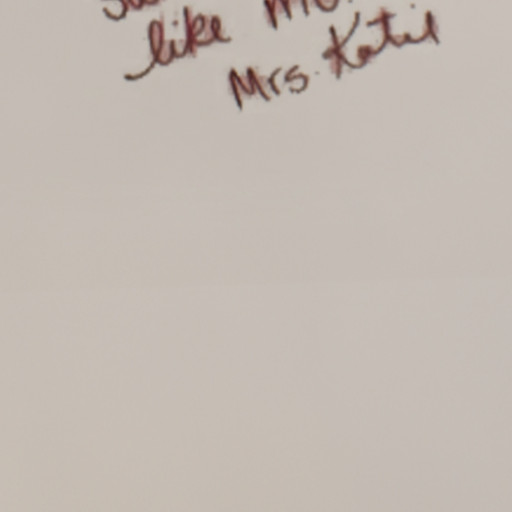 like me.
Mrs. Katil